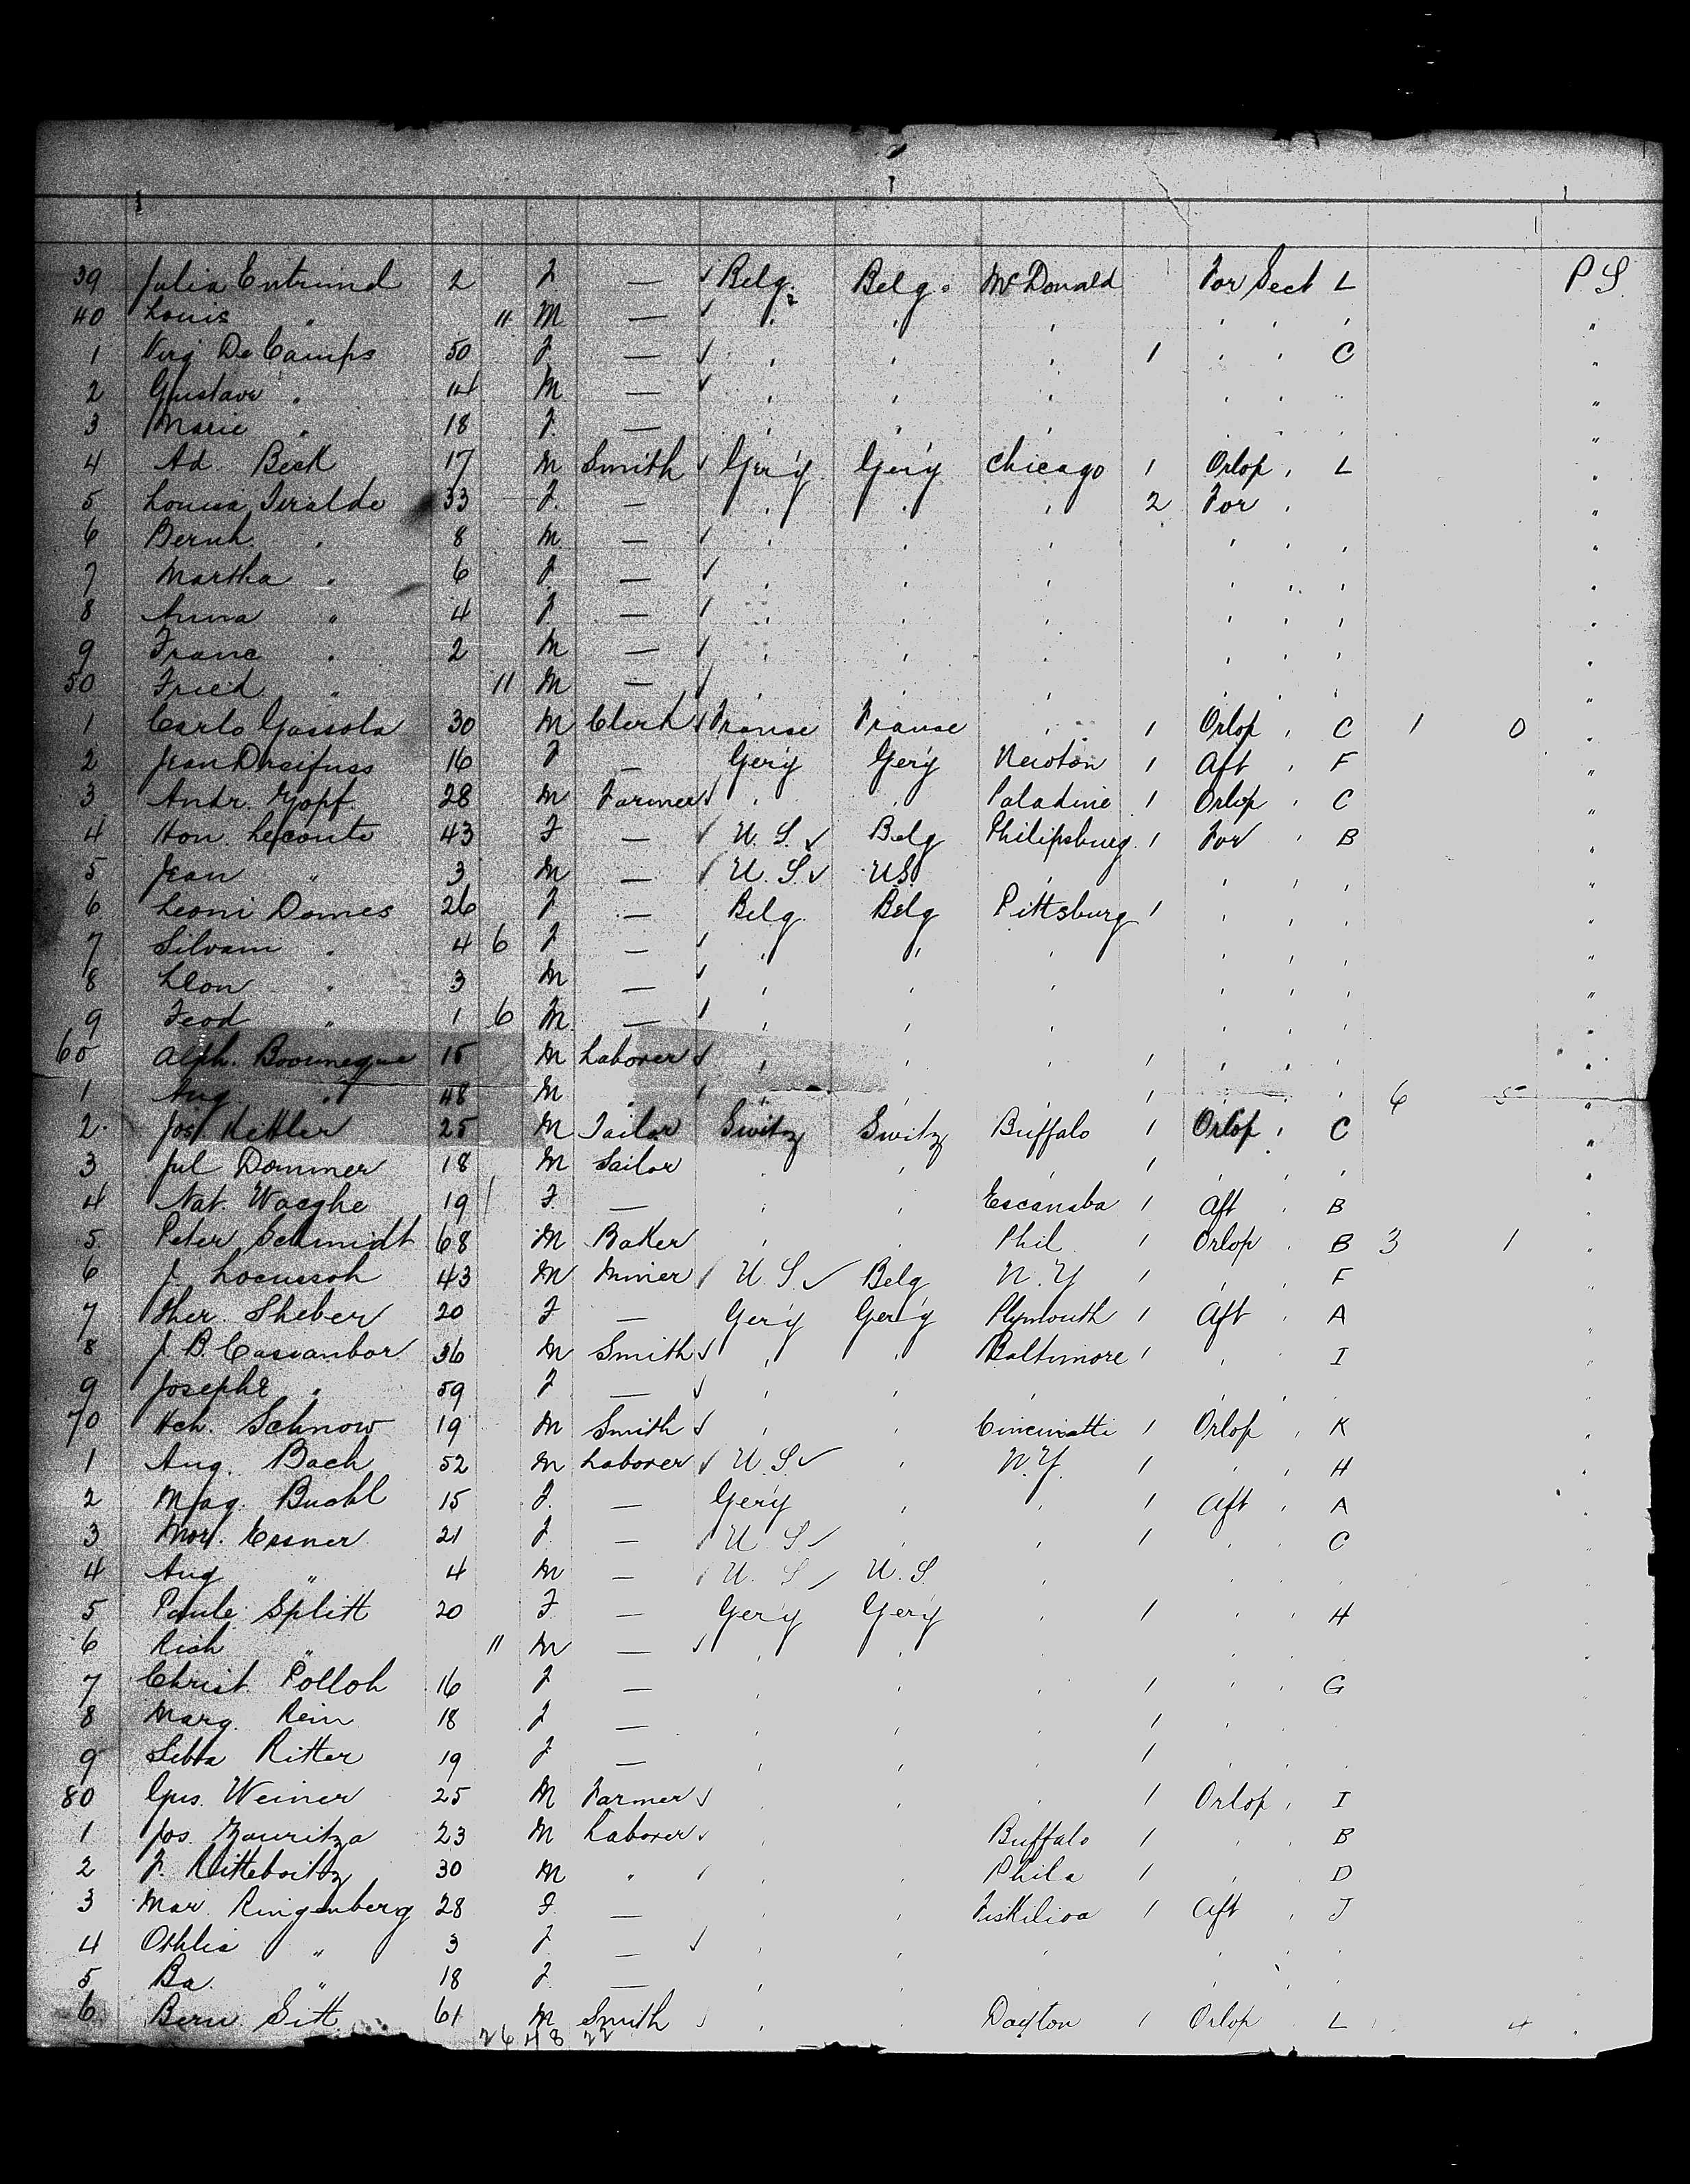 39 Julia Entrind 2 F — ✓ Belg. Belg. McDonald For Sect L P S.
40 Louis " 11 M — ✓ " " " " " " "
1 Virg De Camps 50 F — ✓ " " " 1 " " C "
2 Gustave " 14 M — ✓ " " " " " "
3 Marie " 18 F. — " " " " " " "
4 Ad. Beck 17 M Smith ✓ Ger'y Ger'y Chicago 1 Orlop " L "
5 Louisa 33 F. — " " " 2 For " "
6 Bernh. " 8 M — ✓ " " " " " " "
7 Martha " 6 F. — ✓ " " " " " " "
8 Anna " 4 F. — ✓ " " " " " " "
9 Franc " 2 M — ✓ " " " " " " "
50 Fried " 11 M — ✓ " " " " " " "
1 Carlo Gassola 30 M Clerk ✓ Franse Franse " 1 Orlop " C 1 0 "
2 Jean Dreifuss 16 F — Ger'y Ger'y Newton 1 Aft " F "
3 Andr. Hopf 28 M Farmer ✓ " " Paladine 1 Orlop " C "
4 Hon. Leconte 43 F — ✓ U. S. ✓ Belg Philipsburg. 1 For " B "
5 Jean " 3 M — ✓ U. S. ✓ U.S. " " " " "
6 Leoni Domes 26 F — Belg. Belg Pittsburg 1 " " " "
7 Silvam " 4 6 F — ✓ " " " " " " "
8 Leon " 3 M — ✓ " " " " " " "
9 Feod " 1 6 M — ✓ " " " " " " "
60 Alph. 15 M Laborer ✓ " " " 1 " " " "
1 Aug. " 48 M " ✓ " " " 1 " " " 6 5 "
2 Jos Kettler 25 M Tailor Switz Switz Buffalo 1 Orlop " C "
3 Jul Dommer 18 M Sailor " " " 1 " " " "
4 Nat. Waeghe 19 F. — " " Escanaba 1 Aft " B "
5 Peter Schmidt 68 M Baker " " Phil 1 Orlop " B 3 1 "
6 J. 43 M Miner ✓ U. S. ✓ Belg N. Y 1 " " F "
7 Ther. Sheber 20 F — Ger'y Ger'y Plymouth 1 Aft " A "
8 J. B. 36 M Smith ✓ " " Baltimore 1 " " I "
9 Josephe " 59 F — ✓ " " " " " "
70 Hch. Schnow 19 M Smith ✓ " " Cincinatti 1 Orlop " K "
1 Aug. Bach 52 M Laborer ✓ U. S. ✓ " N.Y. 1 " " H "
2 Mag. Buohl 15 F. — Ger'y " " 1 Aft " A "
3 Mor. Essner 21 F — ✓ U. S. ✓ " " 1 " " C "
4 Aug " 4 M — ✓ U. S ✓ U. S. " " " " "
5 Paule Splitt 20 F — Ger'y Ger'y " 1 " " H "
6 Rich " 11 M — ✓ " " " " " " "
7 Christ. Polloh 16 F — " " " 1 " " G "
8 Marg. Rein 18 F — " " " 1 " " " "
9 Ritter 19 F — " " " 1 " " " "
80 Gus. Weiner 25 M Farmer ✓ " " " 1 Orlop " I "
1 Jos. Zauritza 23 M Laborer ✓ " " Buffalo 1 " " B "
2 F. 30 M " ✓ " " Phila 1 " " D "
3 Mar. Ringenberg 28 F. — " " 1 Aft " J "
4 " 3 F. — ✓ " " " " " " "
5 Ba. " 18 F. — " " " " " "
6 Bern. Sitt 61 M Smith ✓ " " Dayton 1 Orlop L 4 "
26 48 22